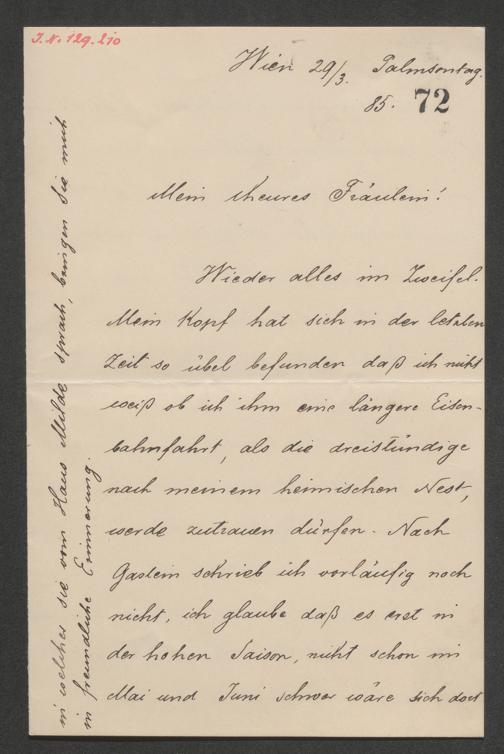 J.N. 129.210
Wien 29/3. Palmsontag.
85. 72
Mein theures Fräulein!
Wieder alles im Zweifel.
Mein Kopf hat sich in der letzten
Zeit so übel befunden daß ich nicht
weiß ob ich ihm eine längere Eisen-
bahnfahrt, als die dreistündige
nach meinem heimischen Nest,
werde zutrauen dürfen. Nach
Gastein schrieb ich vorläufig noch
nicht, ich glaube daß es erst in
der hohen Saison, nicht schon im
Mai und Juni schwer wäre sich dort
in welches sie vom Haus Milde sprach, bringen Sie mich
in freundliche Erinnerung.